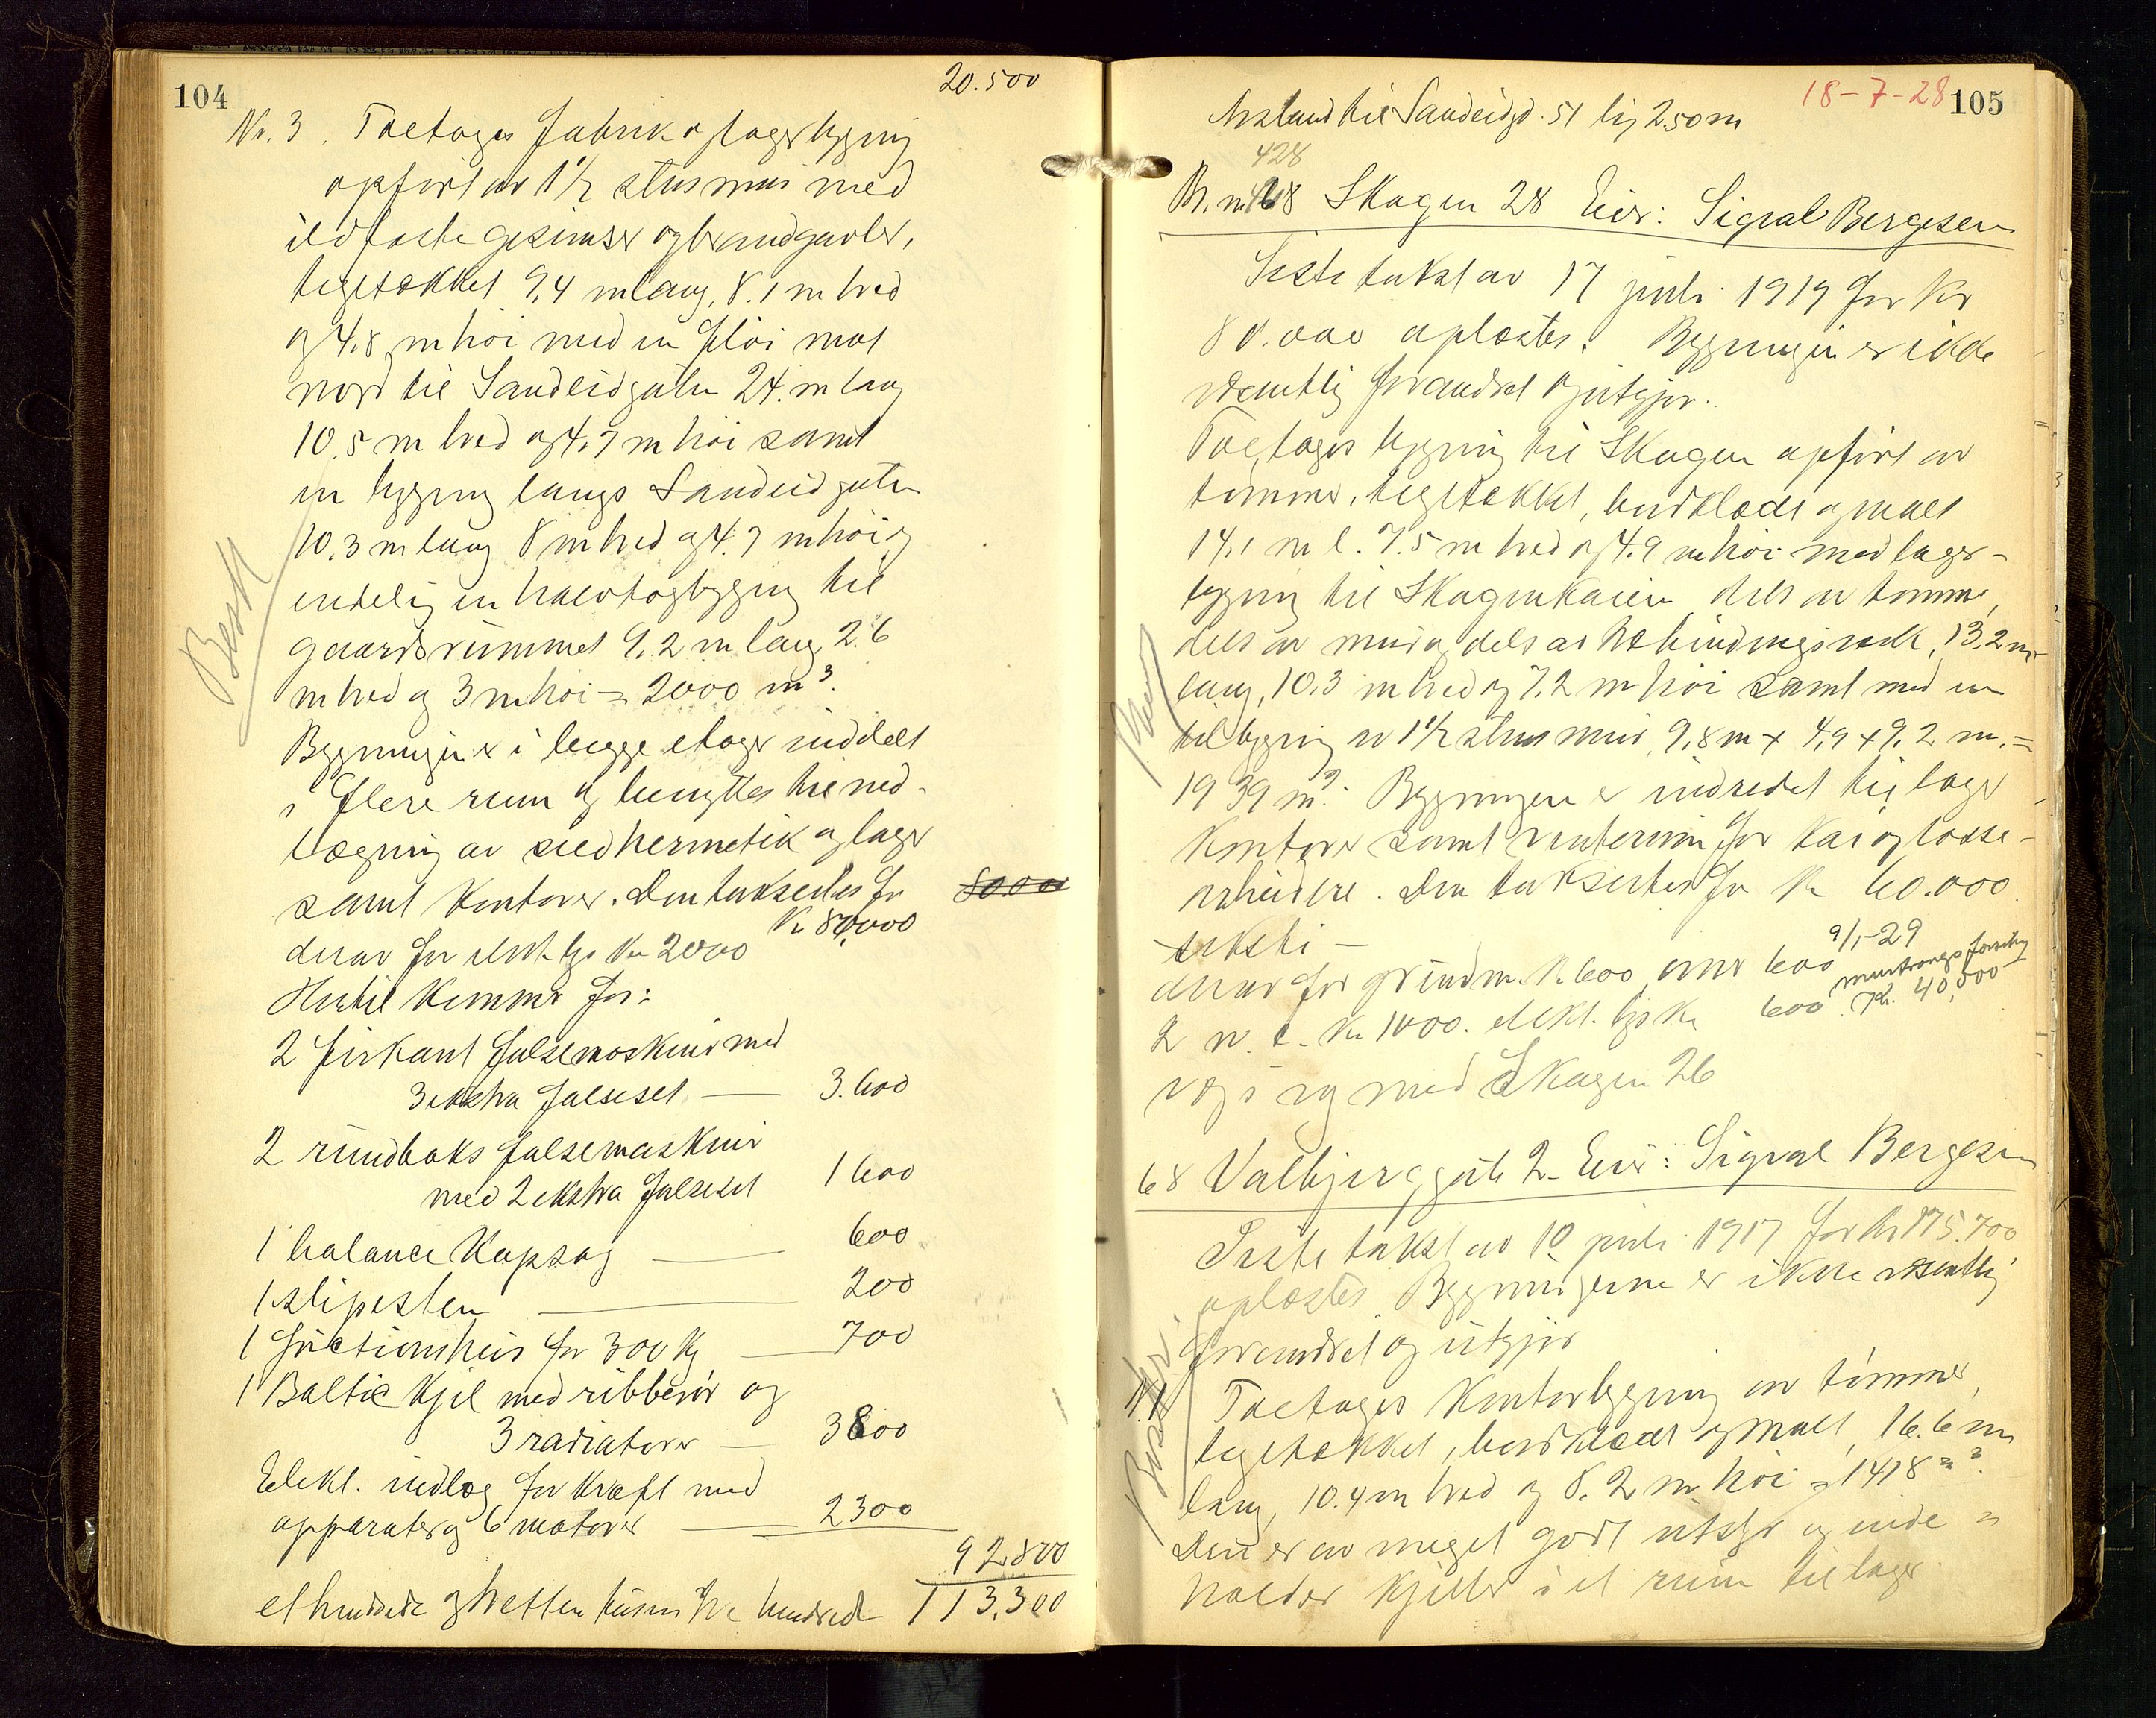 104
20.500
Nr. 3. Toetages fabrik og lagerbygning
opført av 1½ stens mur med
ildfaste gesimser og brandgavler,
teglstækket 9,4 m lang, 8.1 m bred
og 4,8 m høi med en fløi mot
nord til Sandeidgaten 24. m lang
10.5 m bred og 4,7 m høi samt
en bygning langs Sandeidgaten
10.3 m lang 8 m bred og 4.7 m høi og
endelig en halvtagbygning til
gaardsrummet 9,2 m lang, 2.6
m bred og 3 m høi = 2000 m³.
Bygningen er i begge etager inddelt
i flere rum og benyttes til ned-
lægning av sildhermetik og lager
samt kontorer. Den takseres for 80.000
Kr 80,000
derav for elekt. lys Kr 2000
Hertil kommer for:
2 firkant falsemaskiner med
3 ekstra falseset — 3.600
2 rundboks falsemaskiner
med 2 ekstra falsesett 1600
1 balance kapsag — 600
1 slipesten — 200
1 frictionsheis for 300 kg — 700
1 Baltic kjel med ribberør og
3 radiatorer — 3800
Elekt. indlæg for kraft med
apparater og 6 motorer — 2300
92.800
et hundrede og tretten tusen tre hundrede 113.300
18-7-28 105
Avstand til Sandeidgd. 51 lig 2.50 m
428
Br. nr 68 Skagen 28 Eier: Sigval Bergesen
Siste takst av 17 juli 1919 for Kr
80.000 oplæstes. Bygningen er ikke
væsentlig forandret og utgjør..
Toetages bygning til Skagen opført av
tømmer, teglstækket, bordklædt og malt
14,1 m l. 7.5 m bred og 4.9 m høi med lager-
bygning til Skagenkaien dels av tømmer,
dels av mur og dels av utbindingsverk, 13,2 m
lang, 10.3 m bred og 7,2 m høi samt med en
tilbygning av 1½ stens mur, 9,8 m x 4,9 x 9,2 m. =
1939 m³. Bygningen er indredet til lager
kontorer samt venterum for kai og losse-
arbeidere. Den takseres for Kr 60.000
seksti —
derav for grundm. Kr 600
2 w. c. Kr 1000. elekt. lys Kr 600
9/1-29
Kr. 40,000
og med Skagen 26
68 Valbjerggate 2 Eier: Sigval Bergesen
Siste takst av 10 juli 1917 for Kr 175.700
oplæstes. Bygningerne er ikke væsentlig
forandret og utgjør
Nr. 1 Toetages kontorbygning av tømmer,
teglstækket, bordklædt og malt, 16.6 m
lang, 10.4 m bred og 8.2 m høi = 1418 m³.
Den er av meget godt utstyr og inde =
holder kjeller i et rum til lager